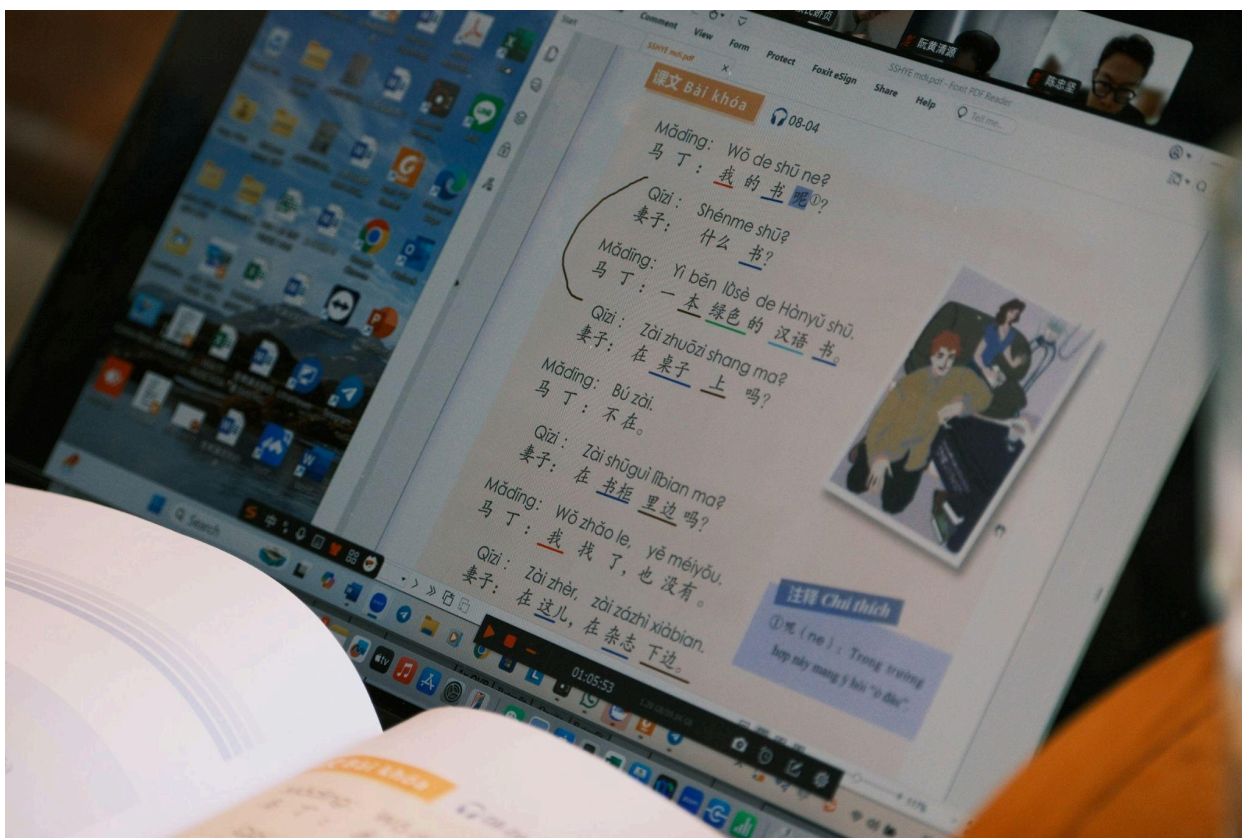 Comment
View
Form
Protect
Foxit eSign
Share
Help
Tell me...
Start
SSHYE mới.pdf - Foxit PDF Reader
SSHYE mới.pdf
阮黄清源
陈忠坚
课文 Bài khóa
08-04
Mǎdīng: Wǒ de shū ne?
马丁：我的书呢①?
Qīzi: Shénme shū?
妻子：什么书?
Mǎdīng: Yì běn lǜsè de Hànyǔ shū.
马丁：一本绿色的汉语书。
Qīzi: Zài zhuōzi shang ma?
妻子：在桌子上吗?
Mǎdīng: Bú zài.
马丁：不在。
Qīzi: Zài shūguì lǐbian ma?
妻子：在书柜里边吗?
Mǎdīng: Wǒ zhǎo le, yě méiyǒu.
马丁：我找了，也没有。
Qīzi: Zài zhèr, zài zázhì xiàbian.
妻子：在这儿，在杂志下边。
注释 Chú thích
①呢 (ne): Trong trường
hợp này mang ý hỏi "ở đâu".
Search
中
01:05:53
117%
tv
Bài khóa